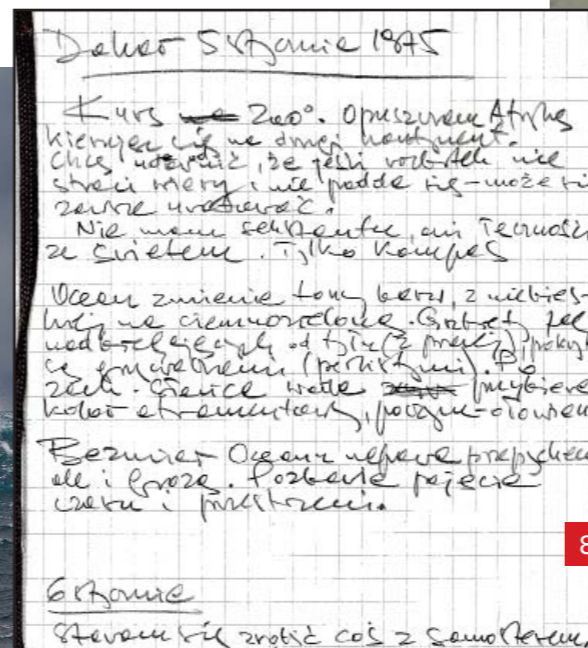 Dakar 5 stycznia 1975
Kurs na 270°. Opuszczam Afrykę
kierując się na drugi kontynent.
Chcę udowodnić, że jeśli rozbitek nie
straci wiary i nie podda się – może się
zawsze uratować.
Nie mam sekstantu, ani łączności
ze światem. Tylko kompas
Ocean zmienia tony barw, z niebies-
kiej na ciemnozieloną. Grzbiety fal
nadbiegających od tyłu (z prawej), pokry
są
zach. słońca woda przybiera
kolor atramentowy,
Bezmiar Oceanu napawa przepychem
ale i grozą. Pozbawia pojęcia
czasu i przestrzeni.
8
6 stycznia
Staram się zrobić coś z samosterem,